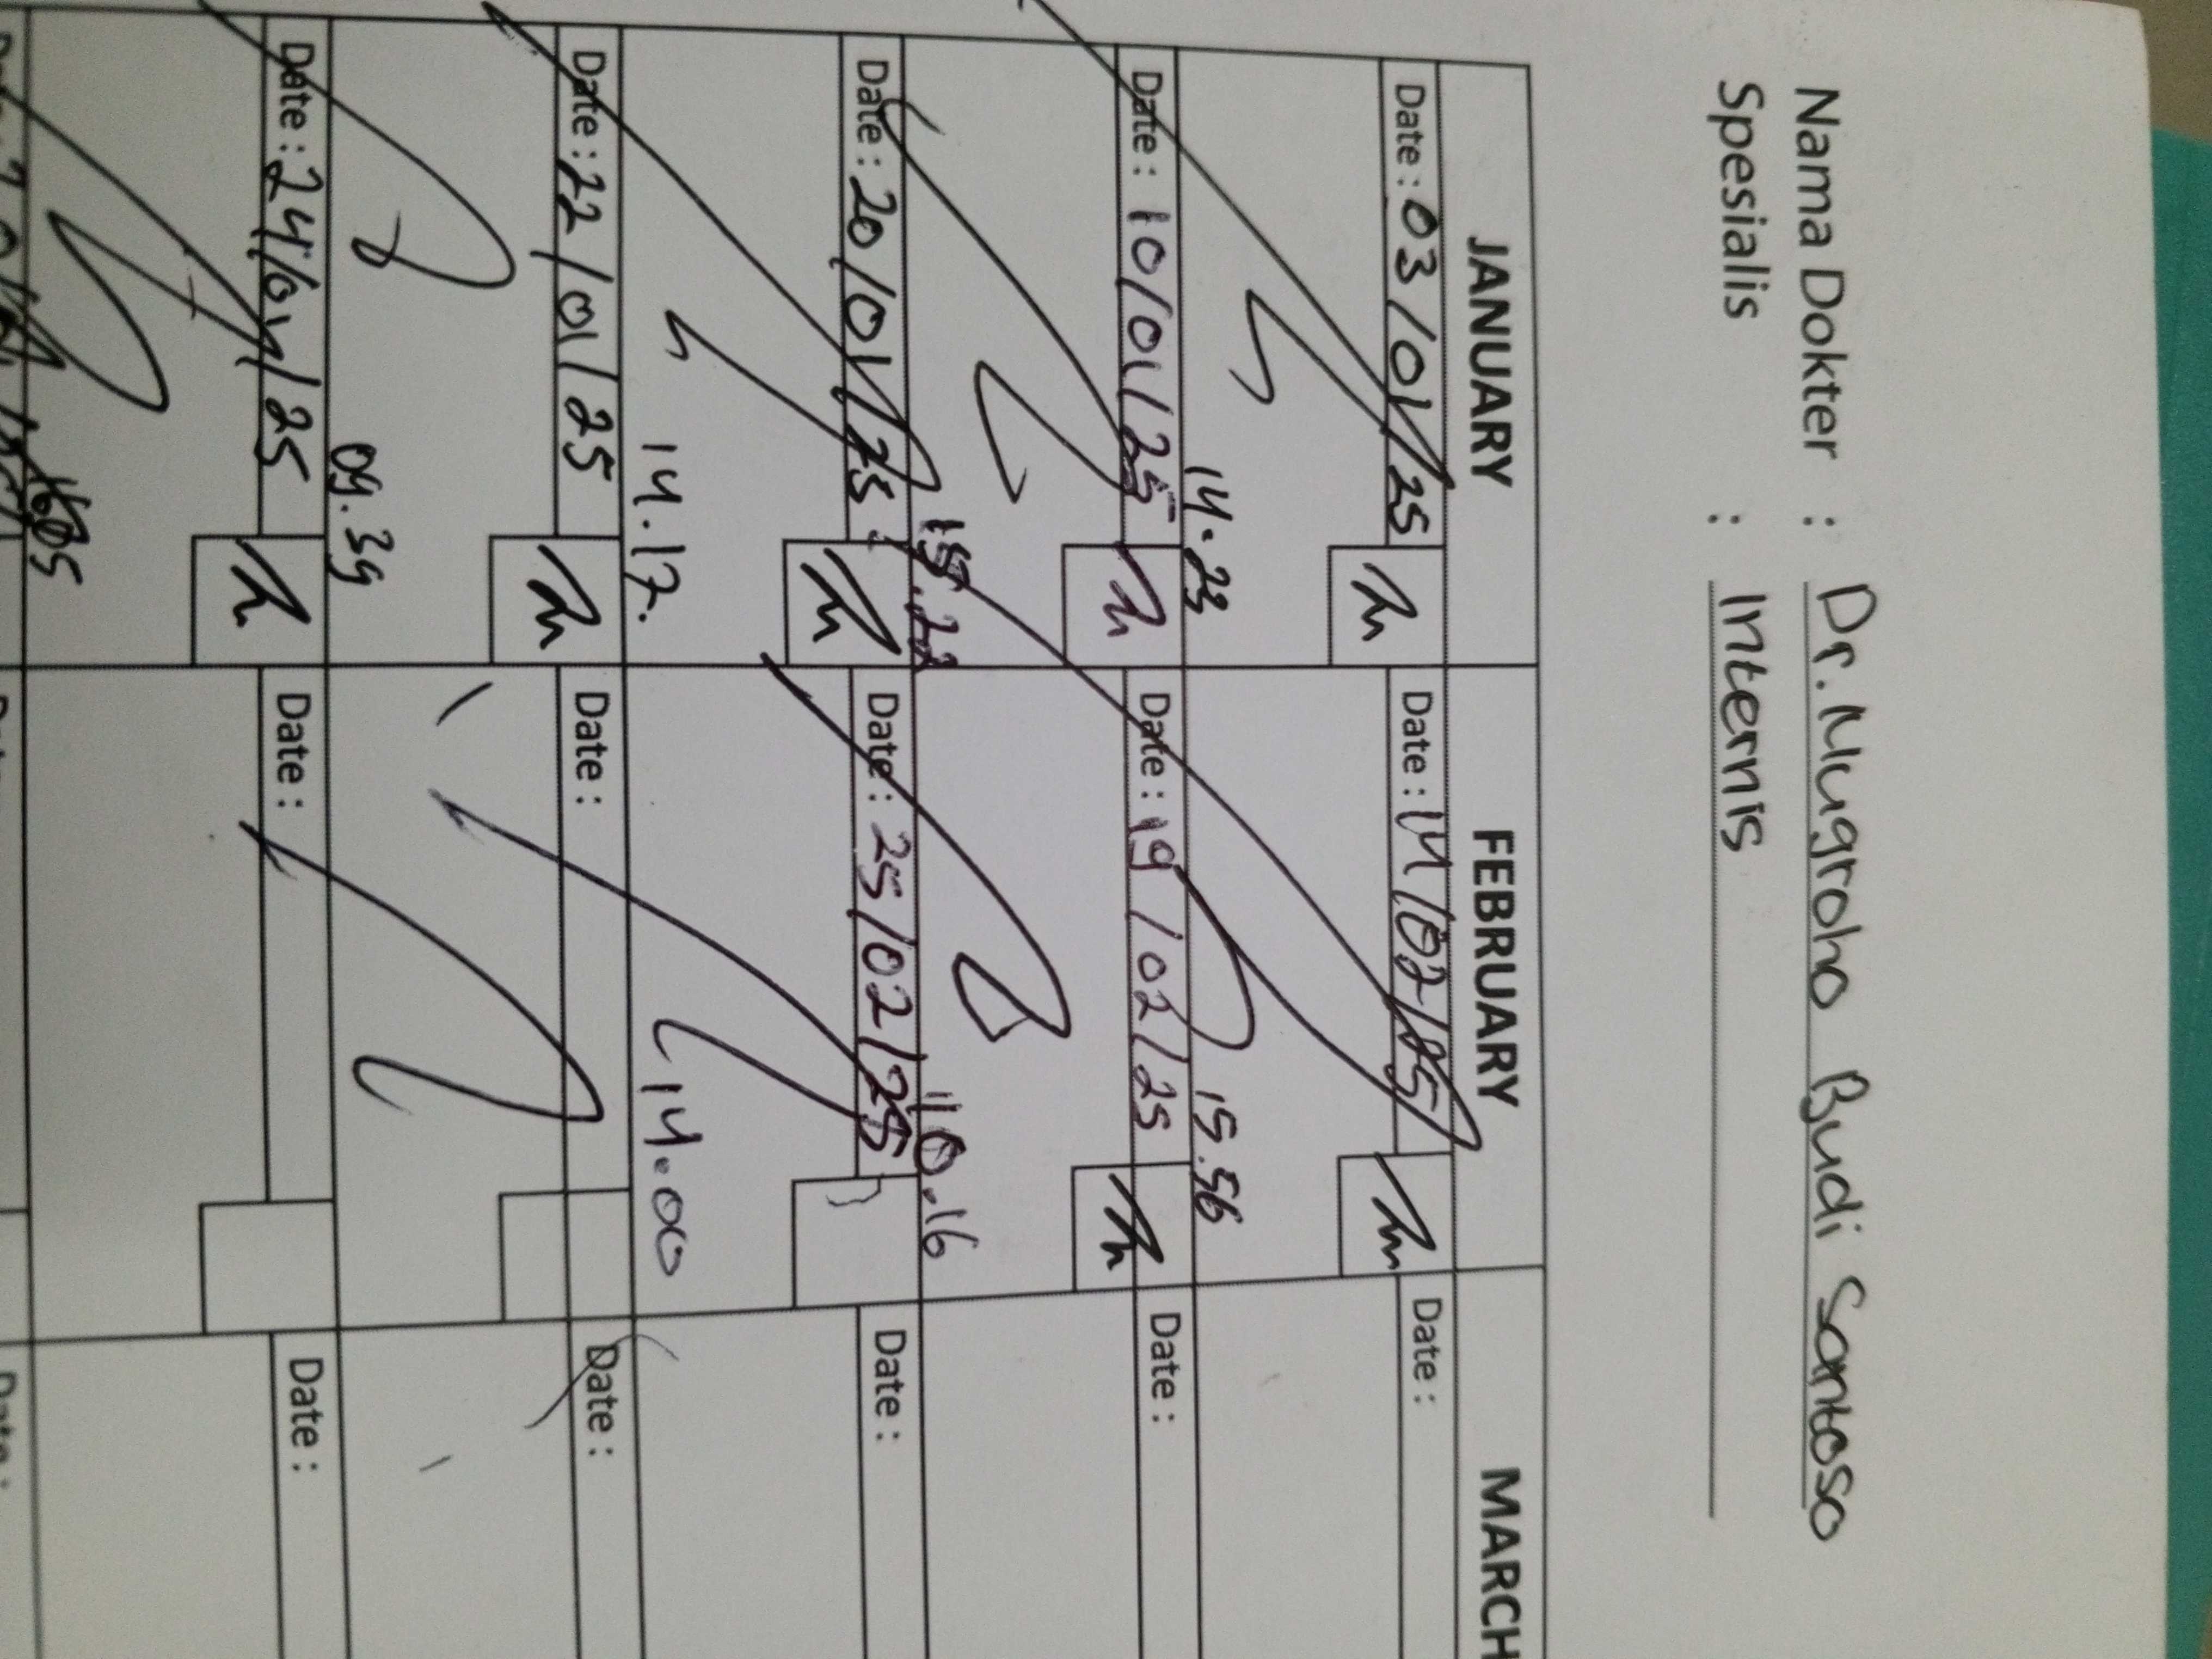 Nama Dokter : Dr. Nugroho Budi Santoso
Spesialis : Internis
JANUARY FEBRUARY MARCH
Date : 03/01/25 Date : 14/02/25 Date :
14.23 15.56
Date : 10/01/25 Date : 19/02/25 Date :
15.22 10.16
Date : 20/01/25 Date : 25/02/25 Date :
14.17. 14.00
Date : 22/01/25 Date : Date :
09.39
Date : 24/01/25 Date : Date :